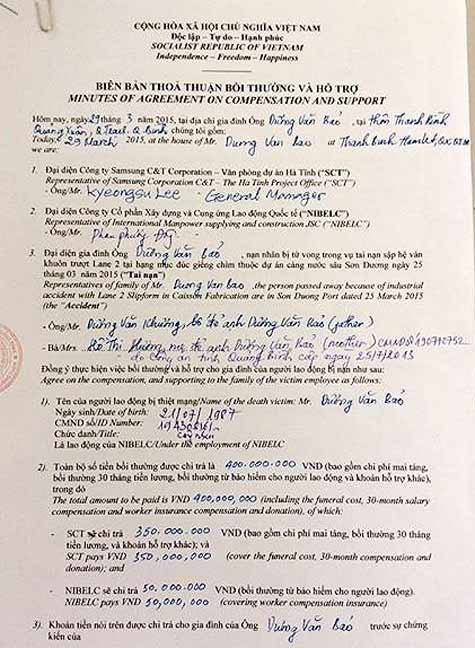 CỘNG HÒA XÃ HỘI CHỦ NGHĨA VIỆT NAM
Độc lập – Tự do – Hạnh phúc
SOCIALIST REPUBLIC OF VIETNAM
Independence – Freedom – Happiness
BIÊN BẢN THOẢ THUẬN BỒI THƯỜNG VÀ HỖ TRỢ
MINUTES OF AGREEMENT ON COMPENSATION AND SUPPORT
Hôm nay, ngày 29 tháng 3 năm 2015, tại địa chỉ gia đình Ông Dương Văn Báo, tại thôn Thanh Bình
Quảng Xuân, Q Trạch, Q Bình chúng tôi gồm:
Today, 29 March 2015, at the house of Mr. Duong Van Bao at Thanh Binh Hamlet,
we are:
1. Đại diện Công ty Samsung C&T Corporation – Văn phòng dự án Hà Tĩnh ("SCT")
Representative of Samsung Corporation C&T – The Ha Tinh Project Office ("SCT")
- Ông/Mr. Kyeongsu Lee - General Manager
2. Đại diện Công ty Cổ phần Xây dựng và Cung ứng Lao động Quốc tế ("NIBELC")
Representative of International Manpower supplying and construction JSC ("NIBELC")
- Ông/Mr. Phan
3. Đại diện gia đình Ông Dương Văn Báo, nạn nhân bị tử vong trong vụ tai nạn sập hệ ván
khuôn trượt Lane 2 tại hạng mục đúc giếng chìm thuộc dự án cảng nước sâu Sơn Dương ngày 25
tháng 03 năm 2015 ("Tai nạn")
Representatives of family of Mr. Duong Van bao, the person passed away because of industrial
accident with Lane 2 Slipform in Caisson Fabrication are in Son Duong Port dated 25 March 2015
(the "Accident")
- Ông/Mr. Dương Văn Khương, bố đẻ anh Dương Văn Báo (father)
- Bà/Mrs. Hồ Thị Hương, mẹ đẻ anh Dương Văn Báo (mother) CMND số 190710752
do công an tỉnh Quảng Bình cấp ngày 25/7/2013
Đồng ý thực hiện việc bồi thường và hỗ trợ cho gia đình của người lao động bị nạn như sau:
Agree on the compensation, and supporting to the family of the victim employee as follows:
1). Tên của người lao động bị thiệt mạng/Name of the death victim: Mr. Dương Văn Báo
Ngày sinh/Date of birth: 21/07/1987
CMND số/ID Number:
Chức danh/Title:
Là lao động của NIBELC/Under the employment of NIBELC
2). Toàn bộ số tiền bồi thường được chi trả là 400.000.000 VND (bao gồm chi phí mai táng,
bồi thường 30 tháng tiền lương, bồi thường từ bảo hiểm cho người lao động và khoản hỗ trợ khác),
trong đó
The total amount to be paid is VND 400,000,000 (including the funeral cost, 30-month salary
compensation and worker insurance compensation and donation), of which:
- SCT sẽ chi trả 350.000.000 VND (bao gồm chi phí mai táng, bồi thường 30 tháng
tiền lương, và khoản hỗ trợ khác); và
SCT pays VND 350,000,000 (cover the funeral cost, 30-month compensation and
donation); and
- NIBELC sẽ chi trả 50.000.000 VND (bồi thường từ bảo hiểm cho người lao động).
NIBELC pays VND 50,000,000 (covering worker compensation insurance)
3). Khoản tiền nói trên được chi trả cho gia đình của Ông Dương Văn Báo trước sự chứng
kiến của